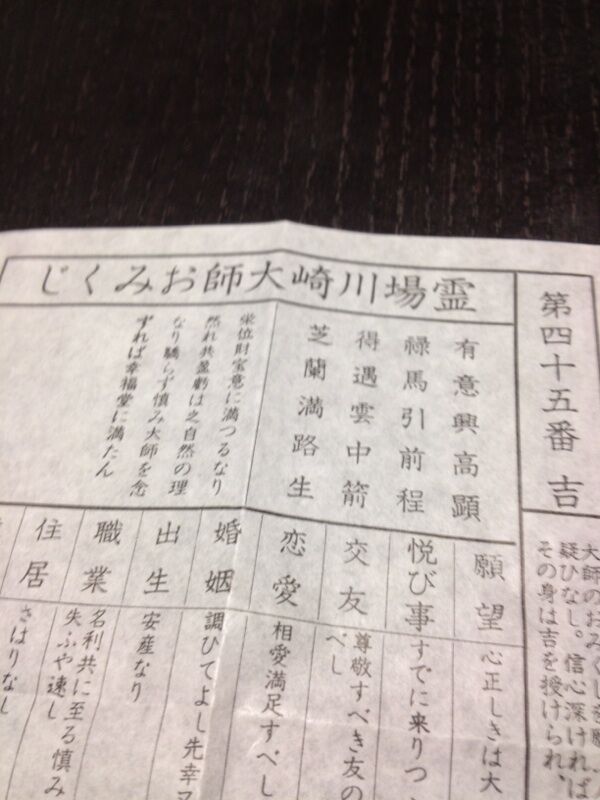 霊場川崎大師おみくじ
第四十五番 吉
大師のおみくじを
疑ひなし。信心深ければ
その身は吉を授けられ、
有意興高顕
禄馬引前程
得遇雲中箭
芝蘭満路生
栄位財宝意に満つるなり
然れ共盈虧は之自然の理
なり驕らず慎み大師を念
ずれば幸福堂に満たん
願望
心正しきは大
悦び事
すでに来りつ
交友
尊敬すべき友の
べし
恋愛
相愛満足すべし
婚姻
調ひてよし先幸
出生
安産なり
職業
名利共に至る慎み
失ふや速し
住居
さはりなし